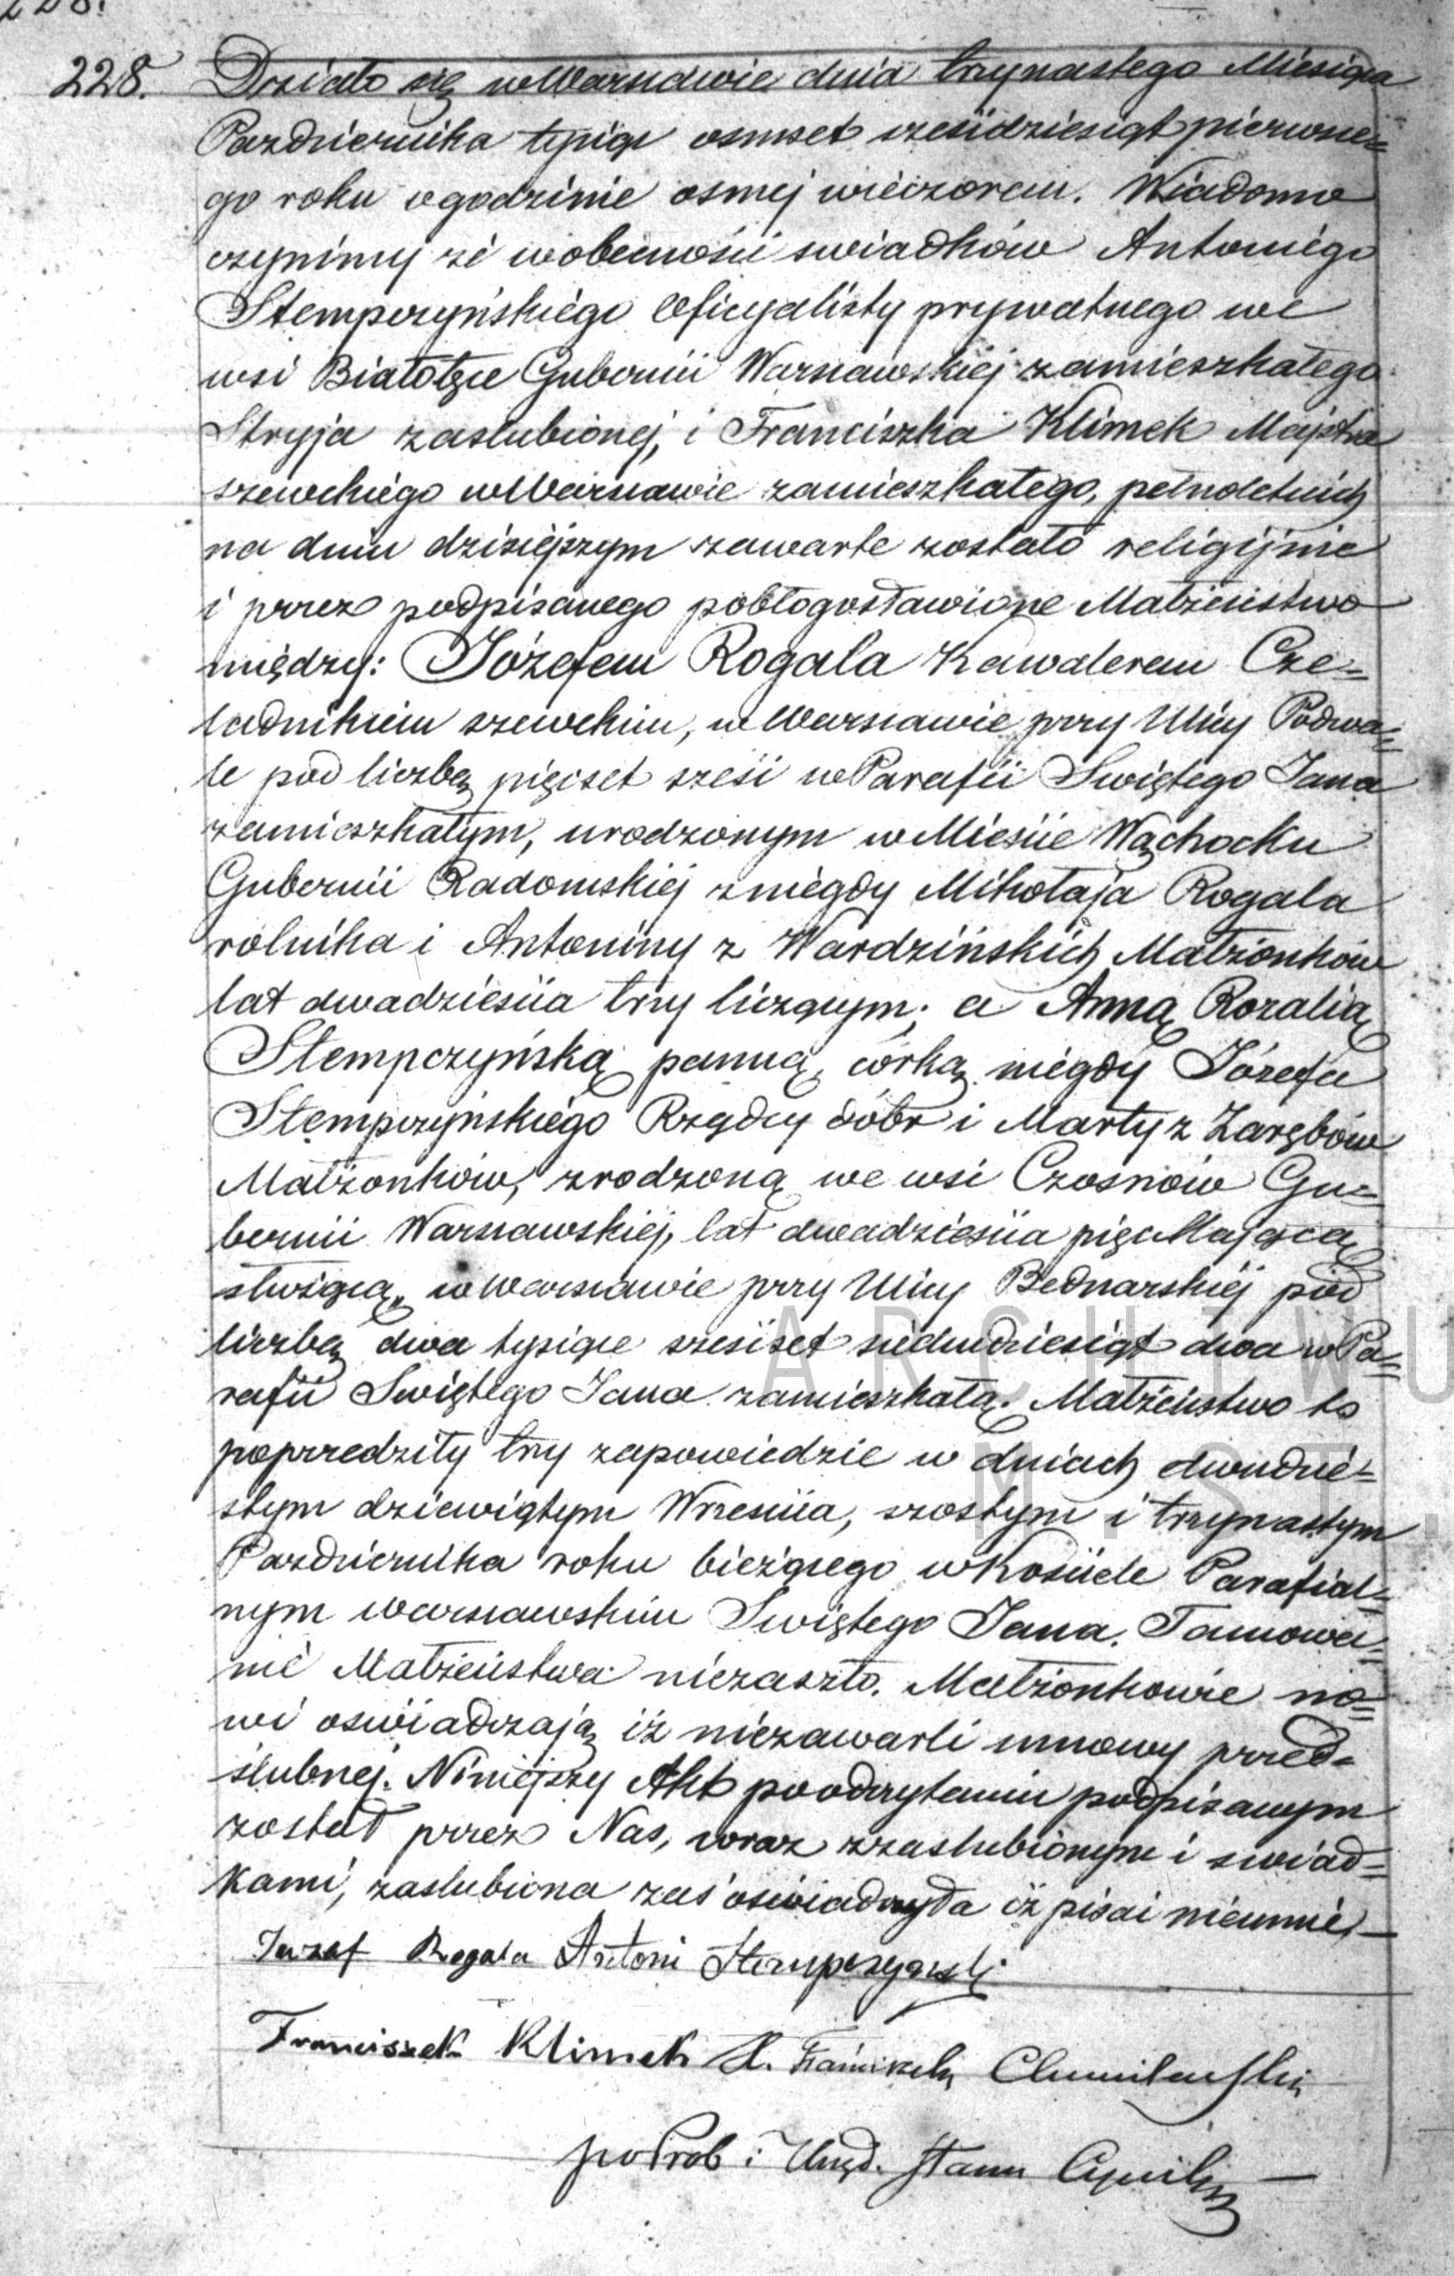 228.
228. Działo się w Warszawie dnia trzynastego Miesiąca
Pazdziernika tysiąc osmset szesćdziesiąt pierwsze=
go roku o godzinie osmej wieczorem. Wiadomo
czynimy że w obecności swiadków Antoniego
Stempczyńskiego Oficyalisty prywatnego we
wsi Białołęce Gubernii Warszawskiej zamieszkałego
Stryja zaslubionej, i Franciszka Klimek Majstra
szewckiego w Warszawie zamieszkałego, pełnoletnich
na dniu dzisiejszym zawarte zostało religijnie
i przez podpisanego pobłogosławione Małżeństwo
między: Józefem Rogala Kawalerem Cze=
ladnikiem szewckim, w Warszawie przy Ulicy Podwa=
le pod liczbą pięcset sześć w Parafii Swiętego Jana
zamieszkałym, urodzonym w Miescie Wąchocku
Gubernii Radomskiej z niegdy Mikołaja Rogala
rolnika i Antoniny z Wardzińskich Małżonków
lat dwadziescia trzy liczącym; a Anną Rozalią
Stempczyńską panną, córką niegdy Józefa
Stempczyńskiego Rządcy dóbr i Marty z Zarębów
Małżonków, zrodzoną we wsi Czosnów Gu=
bernii Warszawskiej, lat dwadziescia pięć Mającą
służącą, w Warszawie przy Ulicy Bednarskiej pod
liczbą dwa tysiące szesćset siedmdziesiąt dwa w Pa=
rafii Swiętego Jana zamieszkałą. Małżeństwo to
poprzedziły trzy zapowiedzie w dniach dwudzie=
stym dziewiątym Wrzesnia, szostym i trzynastym
Pazdziernika roku bieżącego w Kosciele Parafial=
nym warszawskim Swiętego Jana. Tamowa=
nie Małżeństwa niezaszło. Małżonkowie no=
wi oswiadczają iż niezawarli umowy przed=
ślubnej. Niniejszy Akt po odczytaniu podpisanym
został przez Nas, wraz z zaslubionym i swiad=
kami, zaslubiona zaś oswiadczyła iż pisać nieumie.
Juzef Rogala Antoni Stempczynski
Franciszek Klimek X. Franciszek Chmielewski
p o Prob i Urzęd. Stanu Cywiln
ARCHIWU
M. ST.